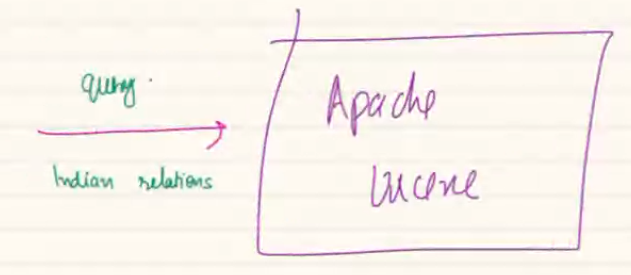 query.
Indian relations
Apache
Lucene